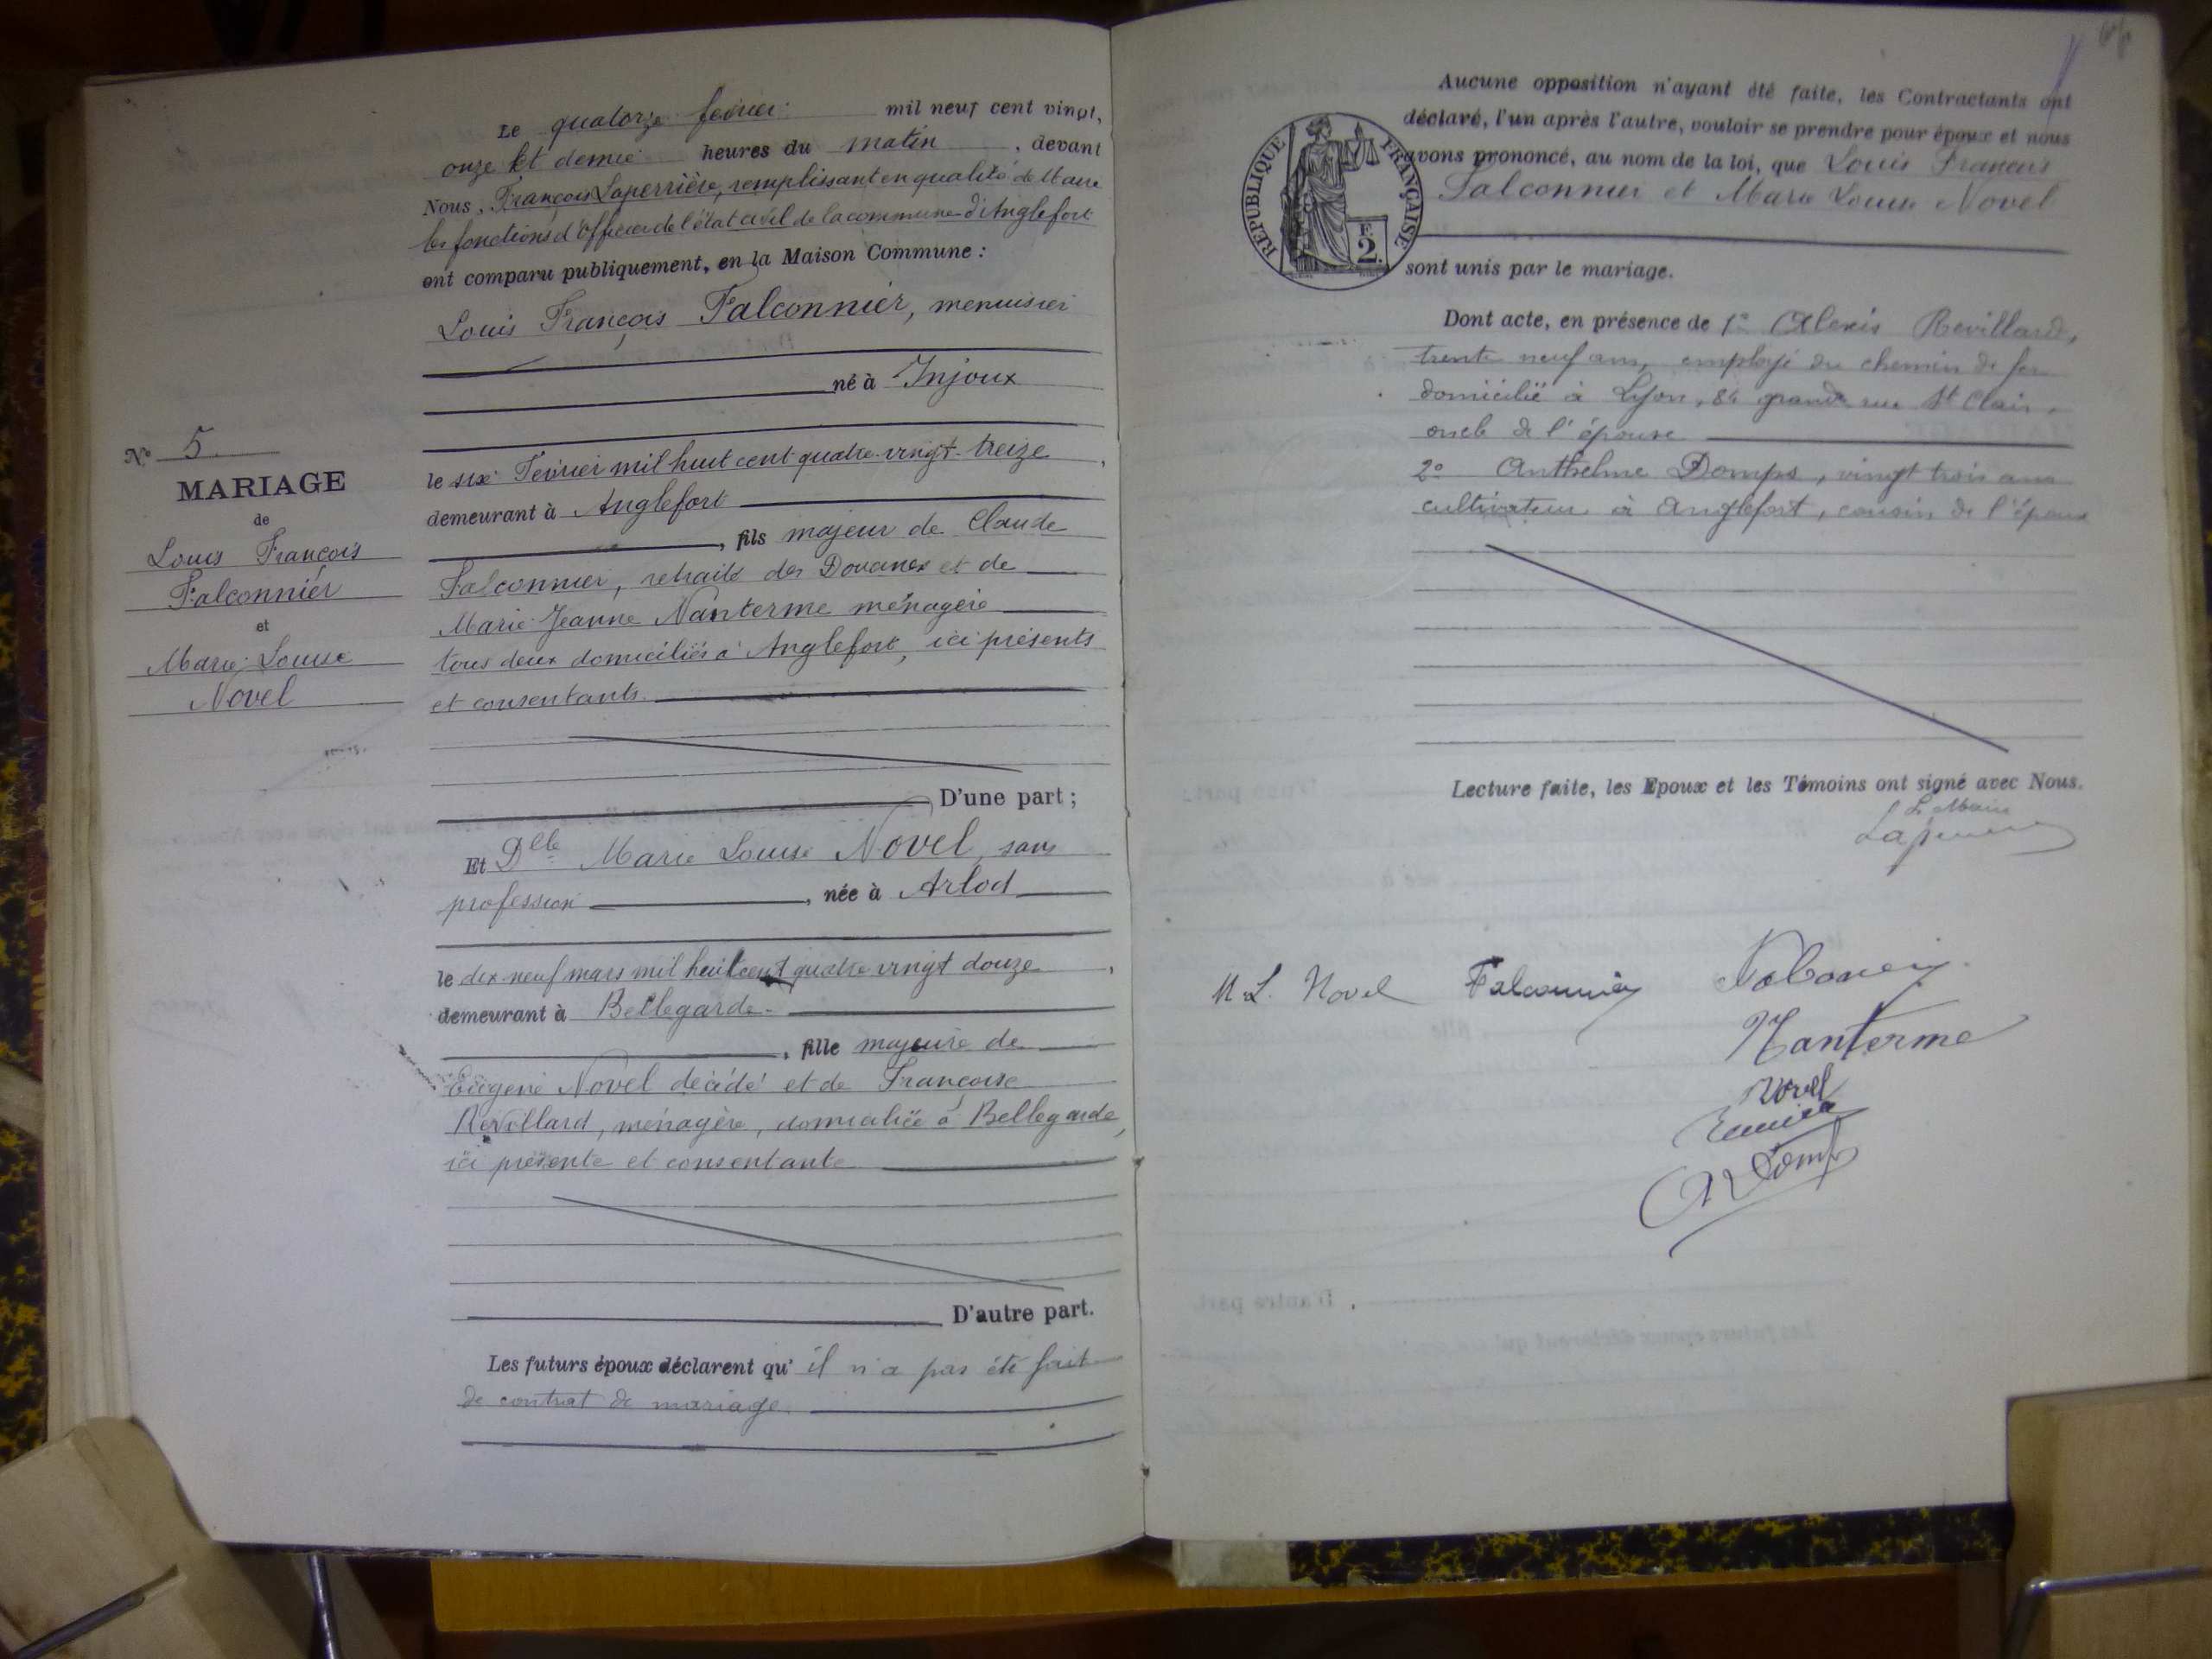 Le quatorze fevrier mil neuf cent vingt,
onze et demie heures du matin, devant
Nous, François Laperrière, remplissant en qualité de Maire
les fonctions d'Officier de l'état civil de la commune d'Anglefort
ont comparu publiquement, en la Maison Commune :
Louis François Falconnier, menuisier
né à Injoux
le six Fevrier mil huit cent quatre-vingt-treize,
demeurant à Anglefort
, fils majeur de Claude
Falconnier, retraité des Douanes et de
Marie-Jeanne Nanterme ménagère
tous deux domiciliés à Anglefort, ici présents
et consentants.
D'une part ;
Et Dlle Marie Louise Novel, sans
profession, née à Arlod
le dix neuf mars mil huit cent quatre vingt douze,
demeurant à Bellegarde
, fille majeure de
Eugène Novel décédé et de Françoise
Revillard, ménagère, domiciliée à Bellegarde,
ici présente et consentante
D'autre part.
Les futurs époux déclarent qu'il n'a pas été fait
de contrat de mariage.
N° 5
MARIAGE
de
Louis François
Falconnier
et
Marie-Louise
Novel
Aucune opposition n'ayant été faite, les Contractants ont
déclaré, l'un après l'autre, vouloir se prendre pour époux et nous
avons prononcé, au nom de la loi, que Louis François
Falconnier et Marie Louise Novel
sont unis par le mariage.
RÉPUBLIQUE FRANÇAISE
F.
2.
Dont acte, en présence de 1° Alexis Revillard,
trente neuf ans, employé du chemin de fer
domicilié à Lyon, 84 grande rue St Clair,
oncle de l'épouse
2° Anthelme Domps, vingt trois ans
cultivateur à Anglefort, cousin de l'époux
Lecture faite, les Epoux et les Témoins ont signé avec Nous.
Le Maire
M. L. Novel Falconnier
Nanterme
Novel